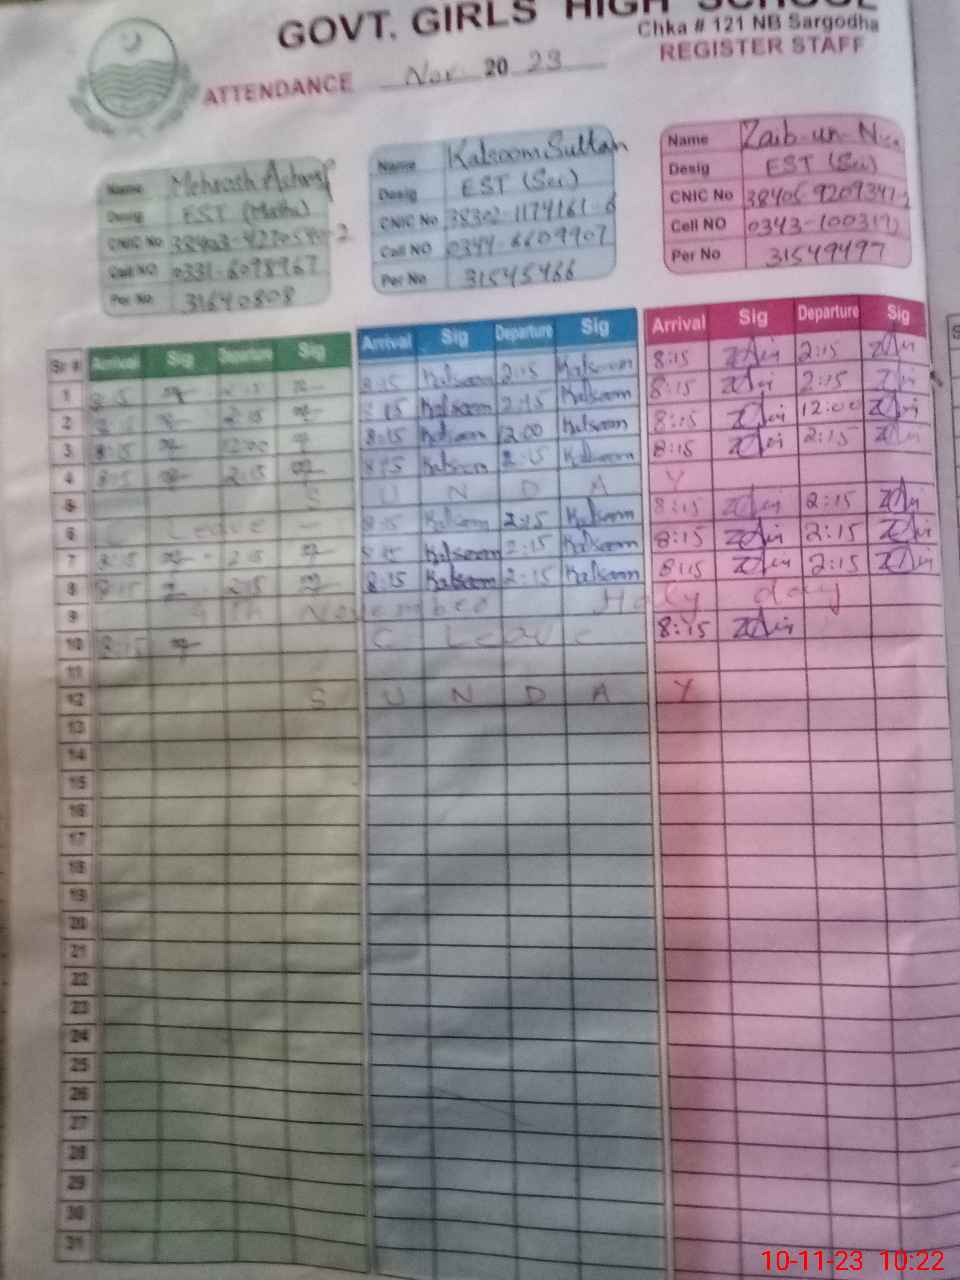 GOVT. GIRLS HIGH SCHOOL
Chka # 121 NB Sargodha
ATTENDANCE Nov 20 23 REGISTER STAFF
Name Mehwash Ashraf
Desig EST (Maths)
CNIC No
Cell NO 0331-6098967
Per No 31640808
Name Kalsoom Sultan
Desig EST (Sci)
CNIC No 38302-1174161-6
Cell NO 0344-6609907
Per No 31545466
Name Zaib-un-Nisa
Desig EST (Sci)
CNIC No
Cell NO
Per No 31549497
Sr # Arrival Sig Departure Sig Arrival Sig Departure Sig Arrival Sig Departure Sig
1 8:15 2:15 8:15 Kalsoom 2:15 Kalsoom 8:15 2:15
2 8:15 2:15 8:15 Kalsoom 2:15 Kalsoom 8:15 2:15
3 8:15 12:00 8:15 Kalsoom 12:00 Kalsoom 8:15 12:00
4 8:15 2:15 8:15 Kalsoom 2:15 Kalsoom 8:15 2:15
5 S U N D A Y
6 C Leave 8:15 Kalsoom 2:15 Kalsoom 8:15 2:15
7 8:15 2:15 8:15 Kalsoom 2:15 Kalsoom 8:15 2:15
8 8:15 2:15 8:15 Kalsoom 2:15 Kalsoom 8:15 2:15
9 9th November Holy day
10 8:15 C Leave 8:15
11
12 S U N D A Y
13
14
15
16
17
18
19
20
21
22
23
24
25
26
27
28
29
30
31
10-11-23 10:22